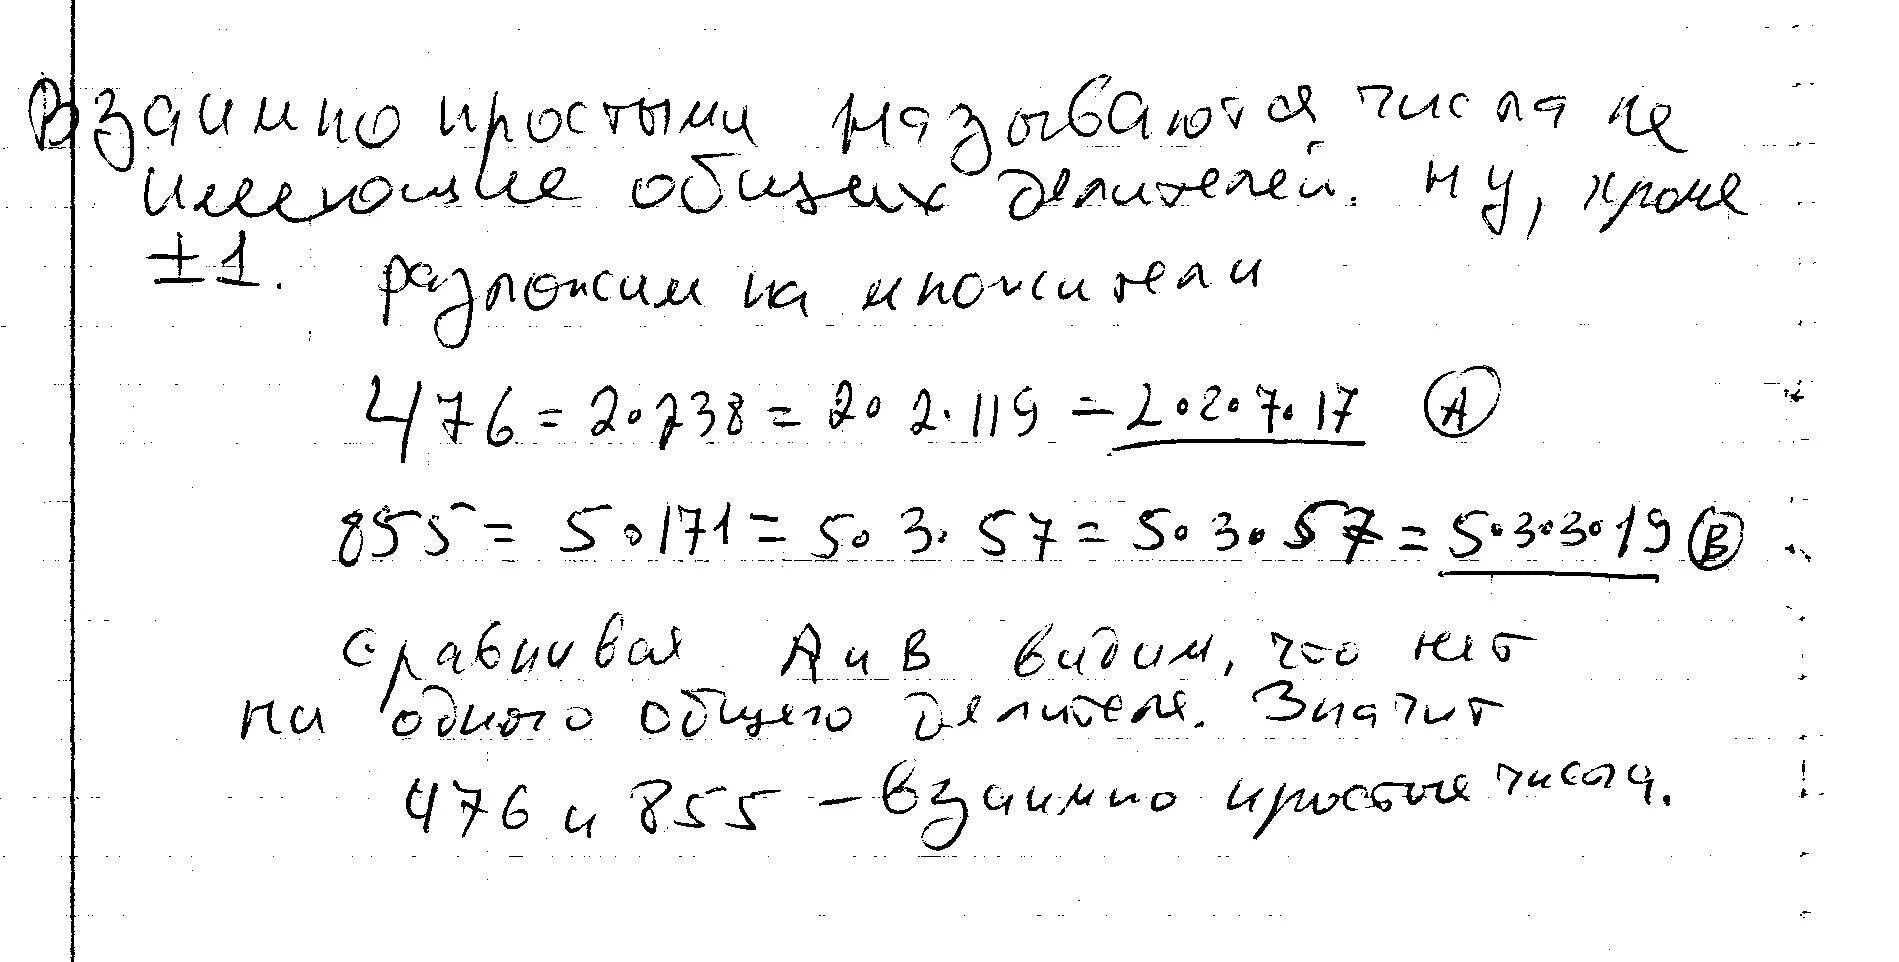 Взаимно простыми называются числа не
имеющие общих делителей. Ну, кроме
±1. разложим на множители
476 = 2·238 = 2·2·119 = 2·2·7·17 (A)
855 = 5·171 = 5·3·57 = 5·3·57 = 5·3·3·19 (B)
сравнивая А и В видим, что нет
ни одного общего делителя. Значит
476 и 855 – взаимно простые числа.